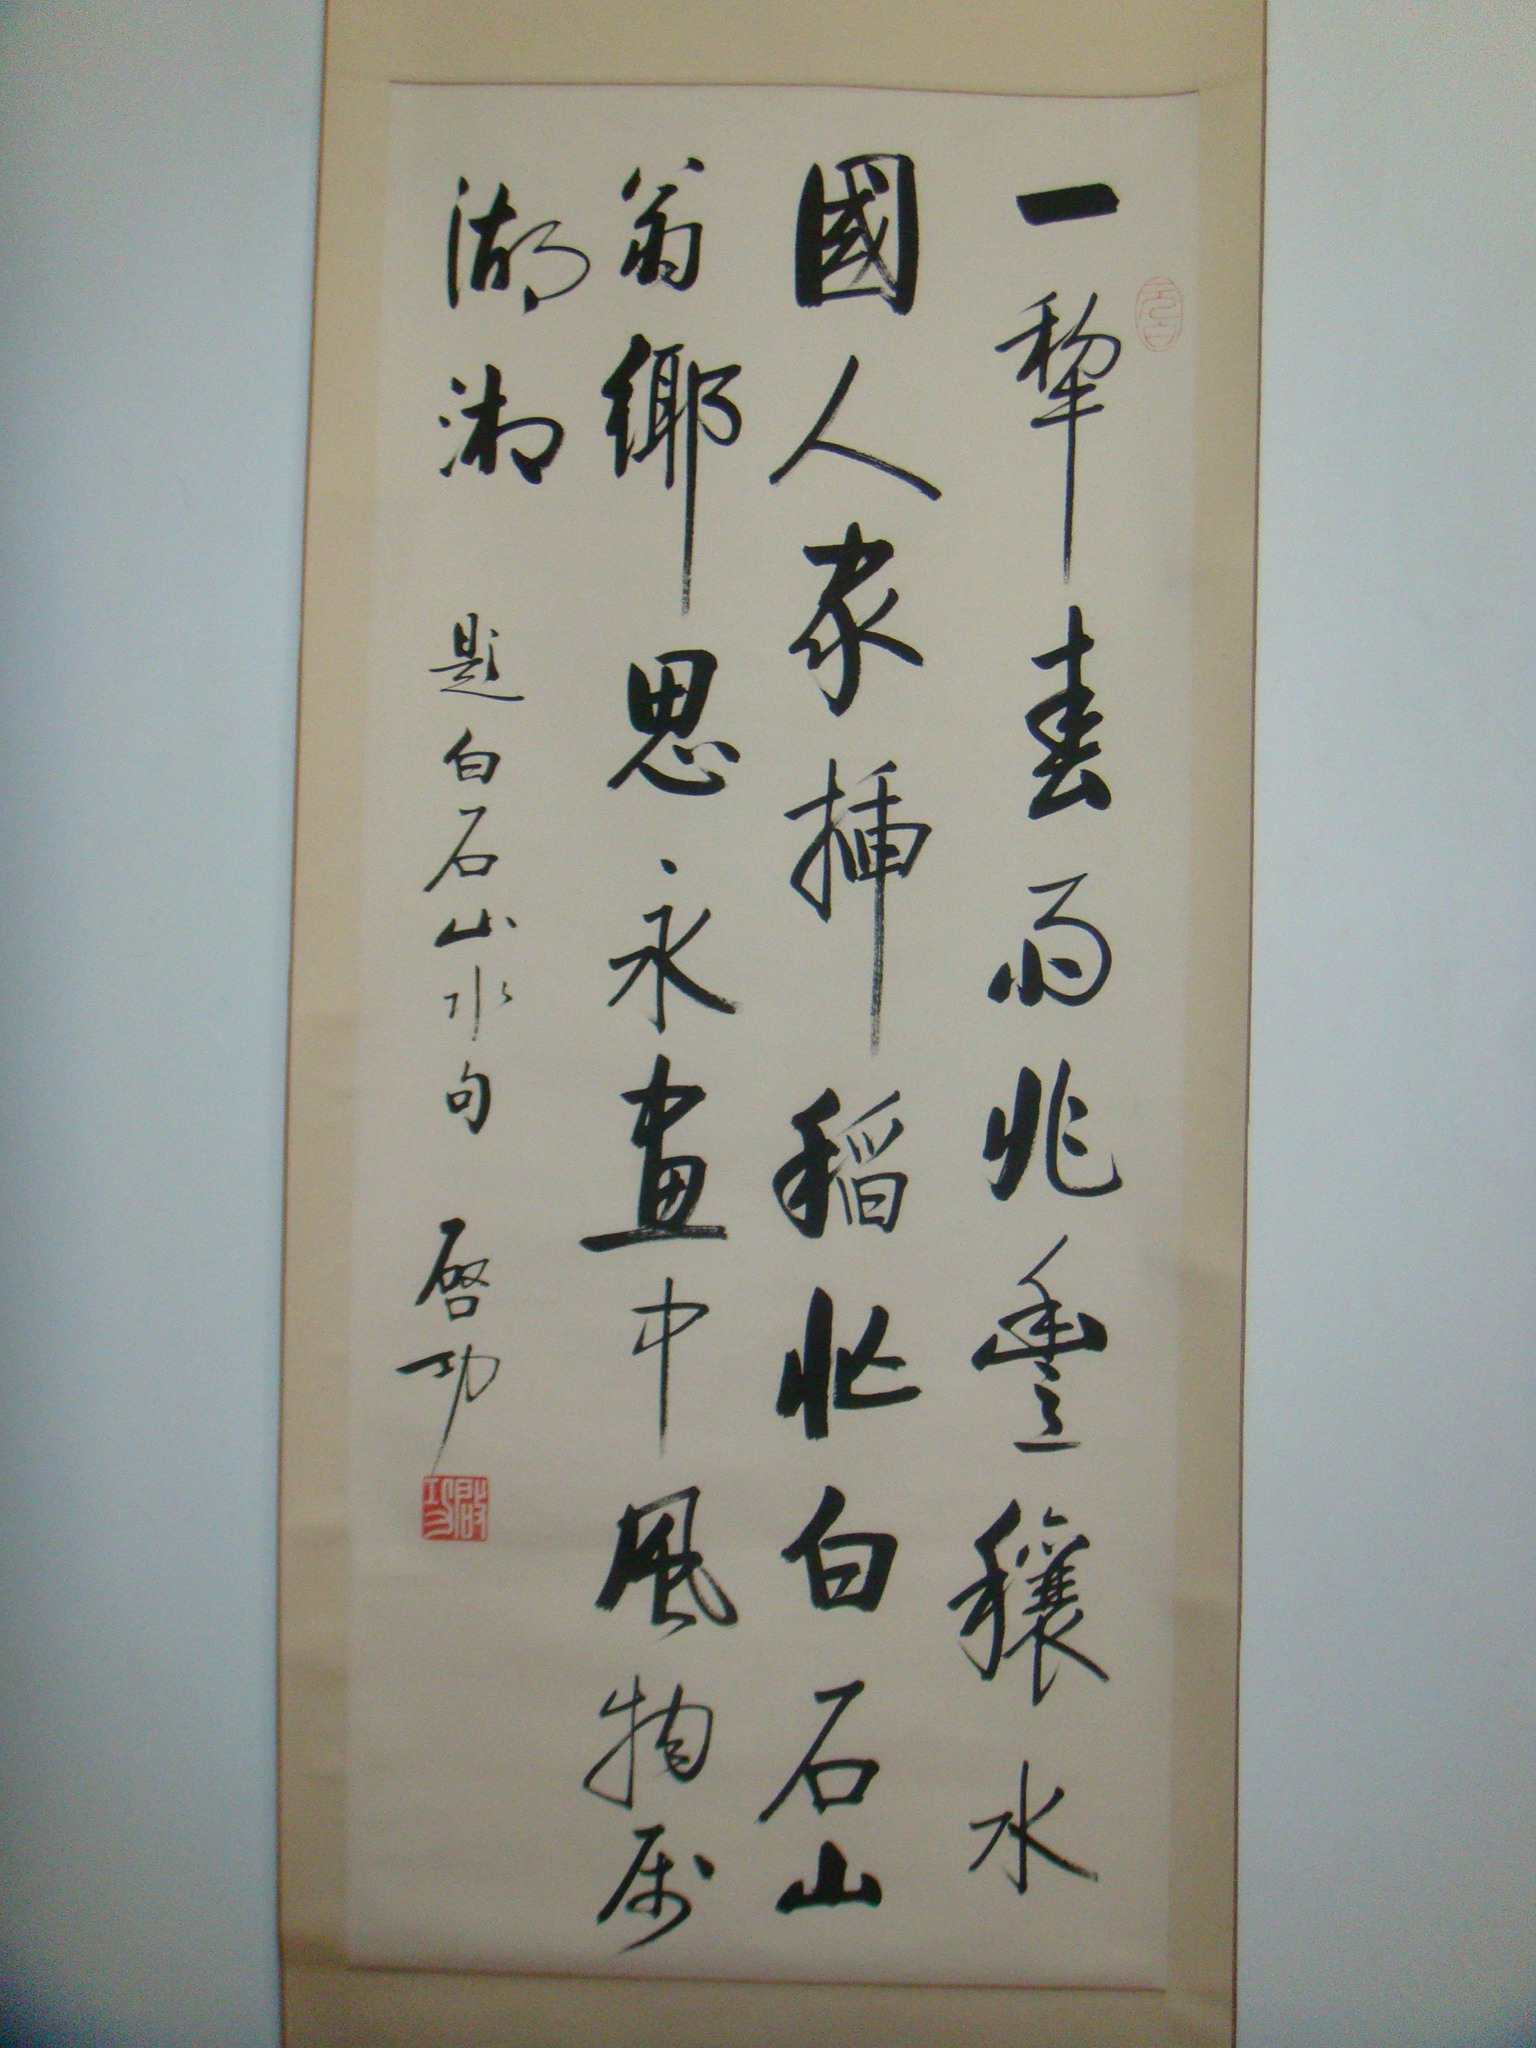 一犂春雨兆豐穰水
國人家插稻忙白石山
翁鄉思永畫中風物属
湖湘
題白石山水句 啓功